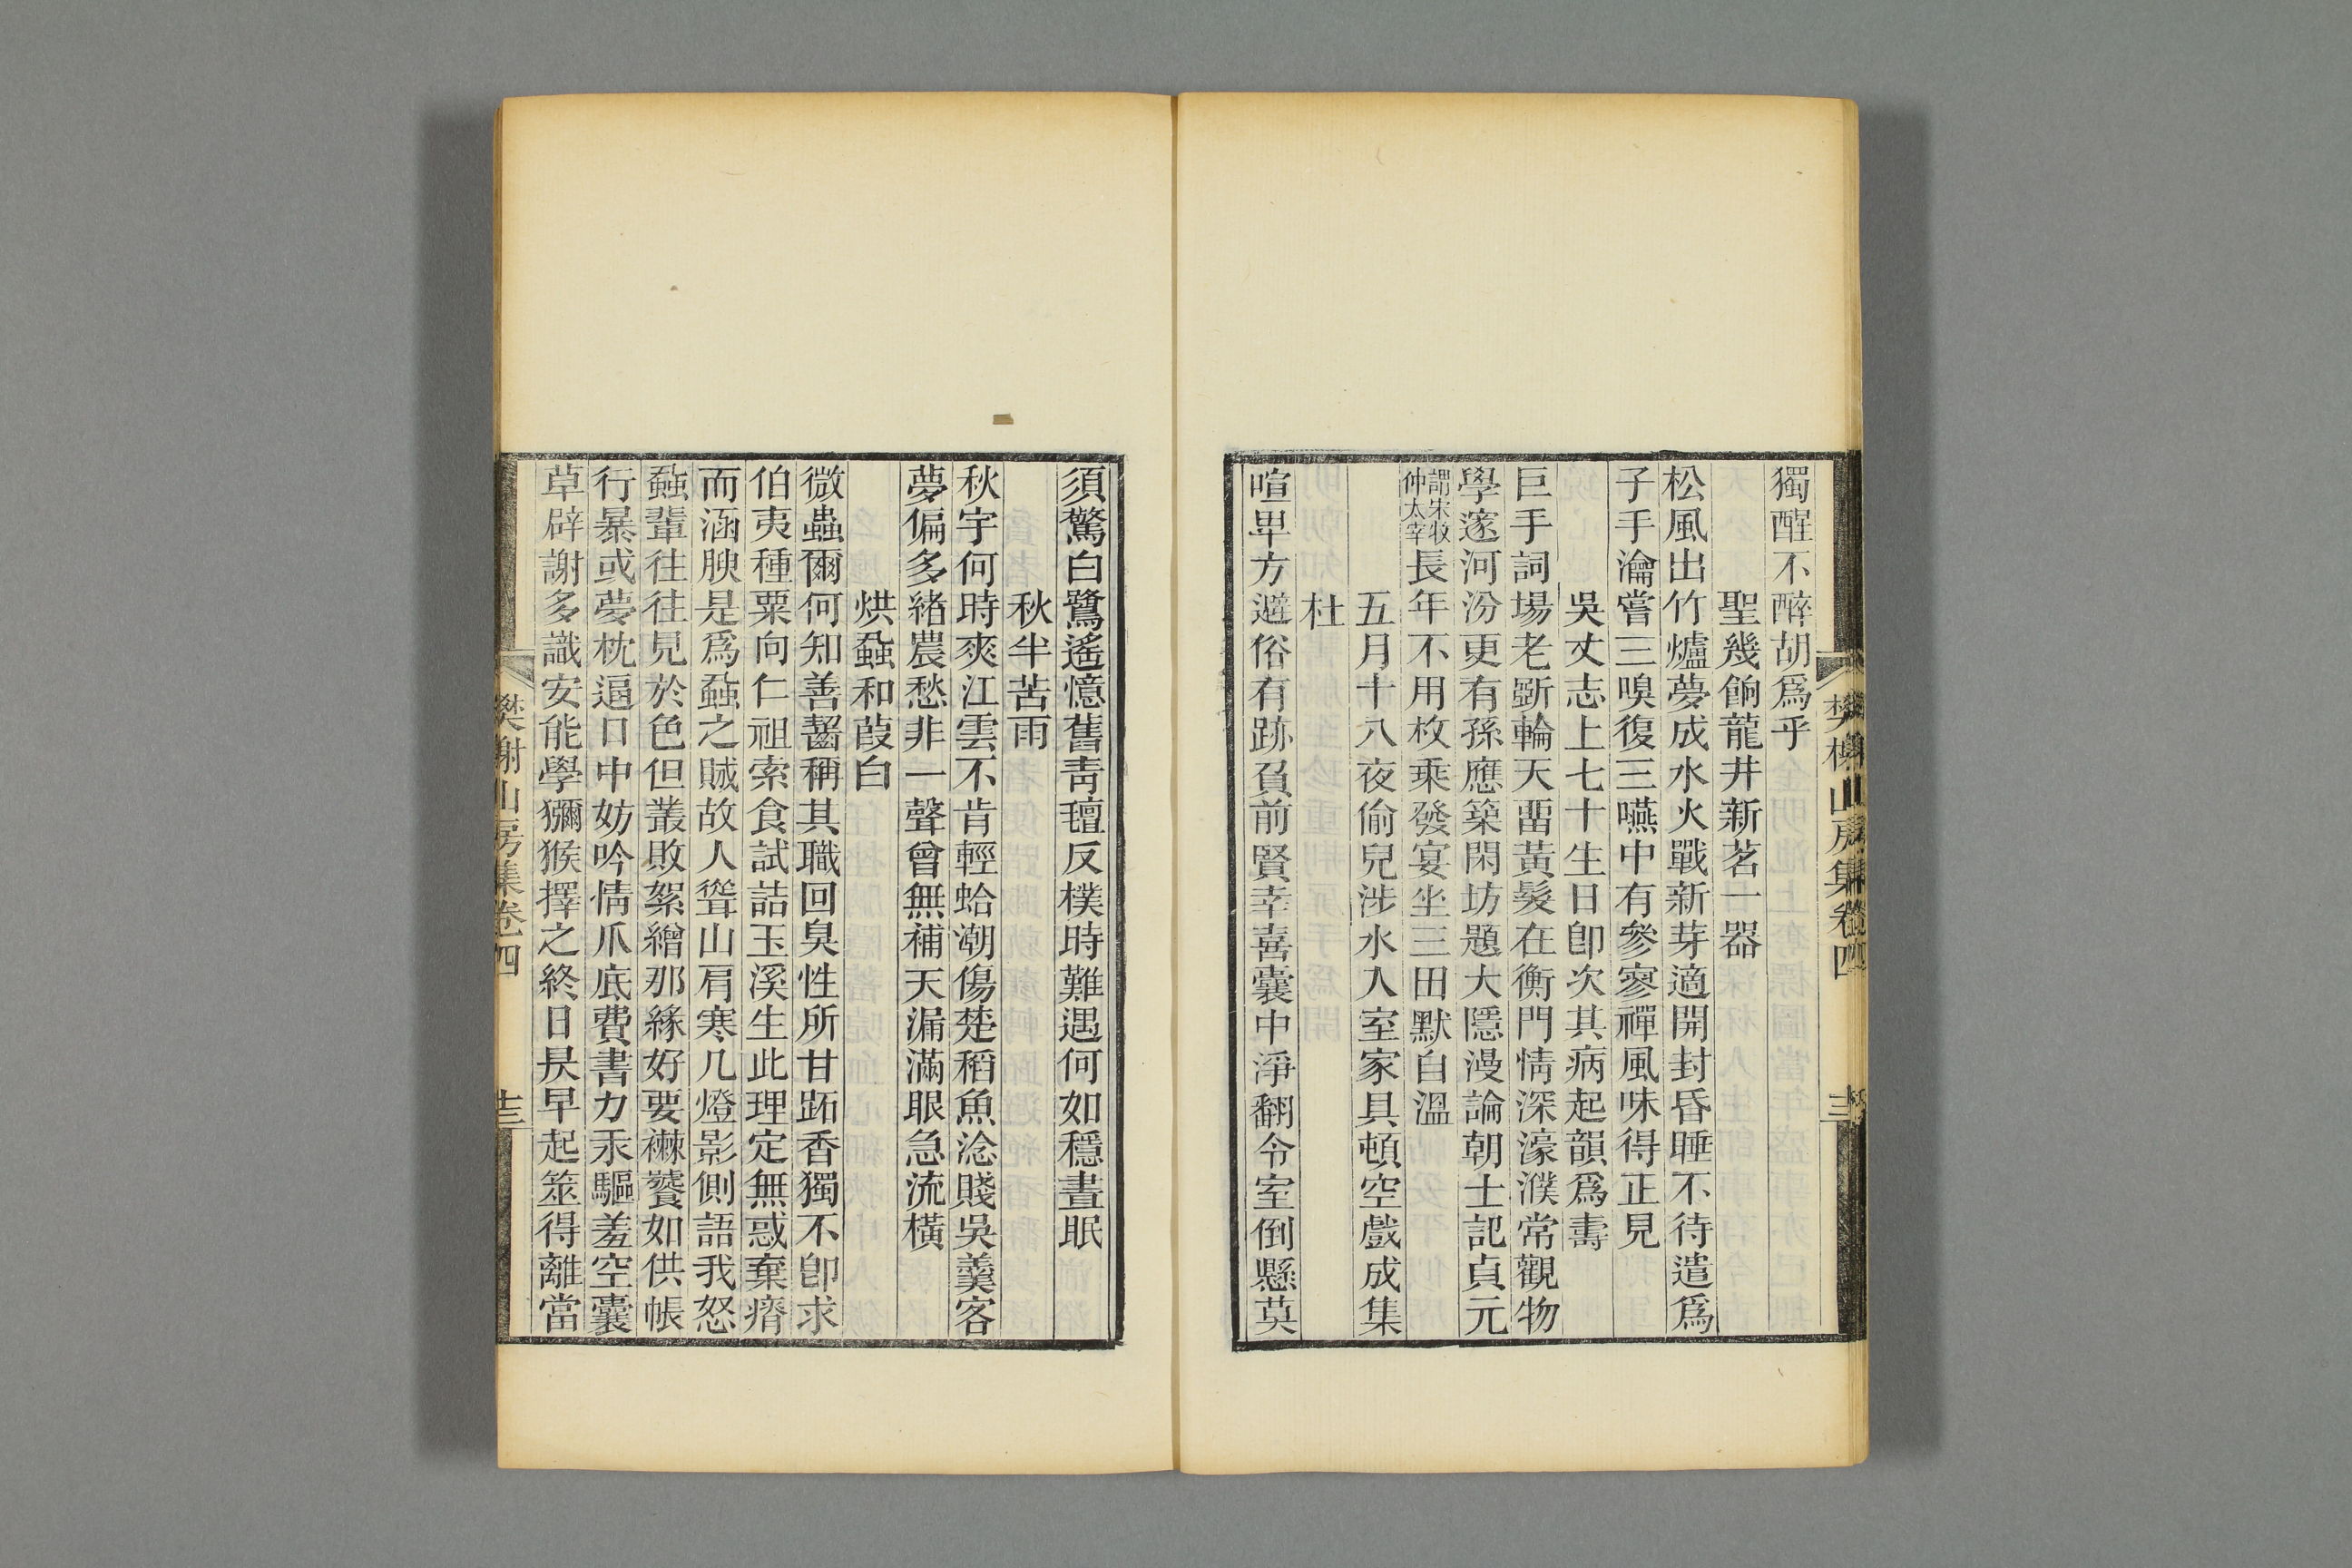 獨醒不醉胡爲乎
聖幾餉龍井新茗一器
松風出竹爐夢成水火戰新芽適開封昏睡不待遣爲
子手瀹嘗三嗅復三嚥中有參寥禪風味得正見
吳丈志上七十生日卽次其病起韻爲壽
巨手詞場老斲輪天留黃髮在衡門情深濠濮常觀物
學邃河汾更有孫應築閑坊題大隱漫論朝士記貞元
謂宋牧仲太宰長年不用枚乘發宴坐三田默自溫
五月十八夜偷兒涉水入室家具頓空戲成集
杜
喧卑方避俗有跡負前賢幸喜囊中淨翻令室倒懸莫
須驚白鷺遙憶舊靑氊反樸時難遇何如穩晝眠
秋半苦雨
秋宇何時爽江雲不肯輕蛤潮傷楚稻魚淰賤吳羹客
夢偏多緒農愁非一聲曾無補天漏滿眼急流橫
烘蝨和葭白
微蟲爾何知善齧稱其職回臭性所甘跖香獨不卽求
伯夷種粟向仁祖索食試詰玉溪生此理定無惑棄瘠
而涵腴是爲蝨之賊故人聳山肩寒几燈影側語我怒
蝨輩往往見於色但叢敗絮繒那緣好要襋饕如供帳
行暴或夢枕逼口中妨吟情爪底費書力汞驅羞空囊
草辟謝多識安能學獼猴擇之終日昃早起筮得離當
樊榭山房集卷四
十三